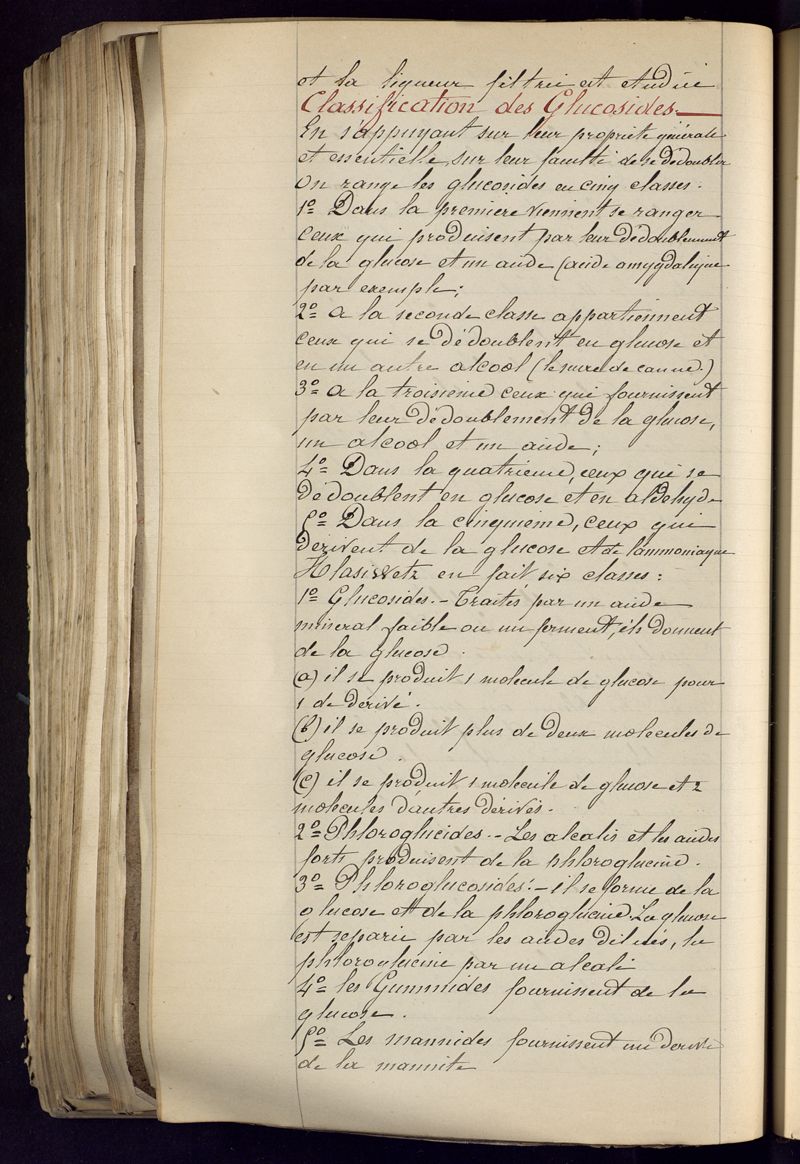 et la liqueur filtrée est étudiée
Classification des Glucosides.
En s'appuyant sur leur propriété générale
et essentielle, sur leur faculté de se dédoubler
on range les glucosides en cinq classes :
1º Dans la première viennent se ranger
ceux qui produisent par leur dédoublement
de la glucose et un acide (acide amygdalique
par exemple ;
2º a la seconde classe appartiennent
ceux qui se dédoublent en glucose et
en un autre alcool (le sucre de canne.)
3º a la troisième ceux qui fournissent
par leur dédoublement de la glucose,
un alcool et un acide ;
4º Dans la quatrième, ceux qui se
dédoublent en glucose et en aldehyde
5º Dans la cinquième, ceux qui
dérivent de la glucose et de l'ammoniaque
Hlasiwetz en fait six classes :
1º Glucosides. - Traités par un acide
minéral faible ou un ferment, ils donnent
de la glucose.
(a) il se produit 1 molecule de glucose pour
1 de dérivé.
(b) il se produit plus de deux molecules de
glucose.
(c) il se produit 1 molécule de glucose et 2
molécules d'autres dérivés.
2º Phloroglucides. - Les alcalis et les acides
forts produisent de la phloroglucine.
3º Phloroglucosides. - il se forme de la
glucose et de la phloroglucine. La glucose
est séparée par les acides dilués, la
phloroglucine par un alcali
4º les Gummides fournissent de la
glucose.
5º Les mannides fournissent un dérivé
de la mannite